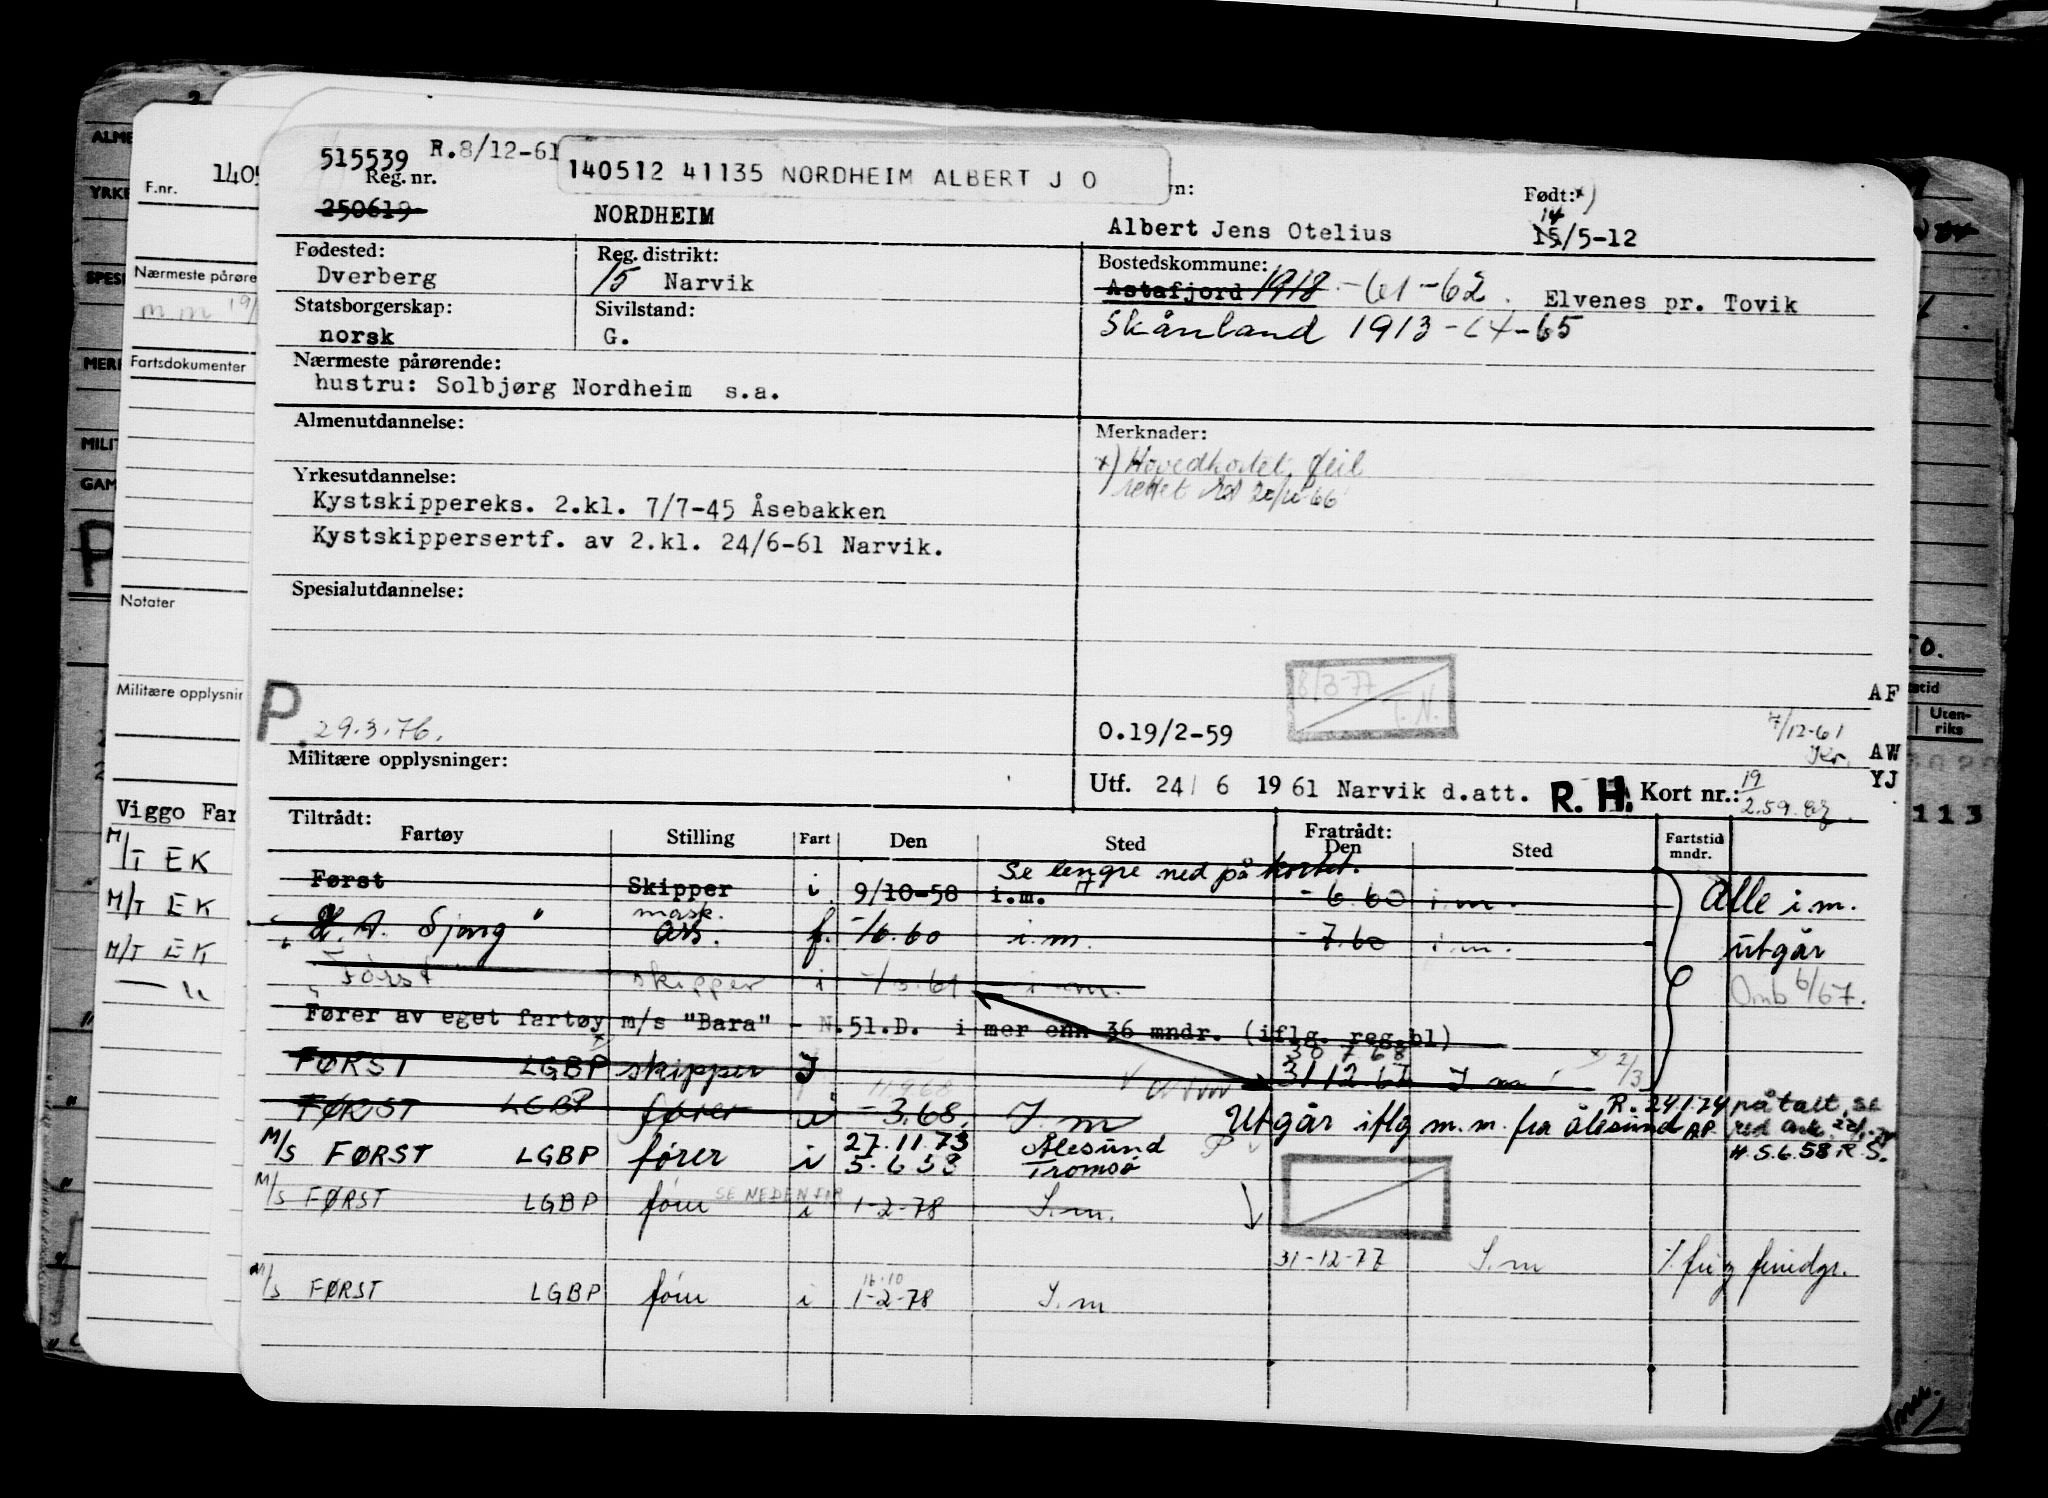 515539 R.8/12-61 140512 41135 NORDHEIM ALBERT J O
Reg. nr.
Født: x)
250619 NORDHEIM Albert Jens Otelius 14 15/5-12
Fødested: Dverberg
Reg. distrikt: 15 Narvik
Bostedskommune: Astafjord 1918 - 61 - 62. Elvenes pr. Tovik
Skånland 1913 - 64 - 65
Statsborgerskap: norsk
Sivilstand: G.
Nærmeste pårørende:
hustru: Solbjørg Nordheim s.a.
Almenutdannelse:
Merknader:
x) Hovedkortet feil
rettet
Yrkesutdannelse:
Kystskippereks. 2.kl. 7/7-45 Åsebakken
Kystskippersertf. av 2.kl. 24/6-61 Narvik.
Spesialutdannelse:
8/3-77 T.N.
P. 29.3.76.
O.19/2-59
7/12-61
Militære opplysninger:
Utf. 24/ 6 19 61 Narvik d.att. R. H. Kort nr.: 19/2.59.
AF
AW
YJ
Tiltrådt: Fratrådt:
Fartøy Stilling Fart Den Sted Den Sted Fartstid mndr.
Se lengre ned på kortet.
Først Skipper i 9/10-58 i.m. - 6.60 i.m. Alle i.m.
mask. ass. f. -/6.60 i.m. - 7.60 i.m. utgår
"Først" skipper i i.m. Omb 6/67.
Fører av eget fartøy m/s "Bara" - N.51.D. i mer enn 36 mndr. (iflg. reg.bl)
30 7 68
FØRST LGBP skipper I 31 12 67 I.m 2/3
FØRST LGBP fører i - 3.68. I.m Utgår iflg m.m. fra Ålesund R. 24/1.74 AP påtalt, se
M/S FØRST LGBP fører i 27.11.73 Ålesund
5.6 58 Tromsø
H. 5.6.58 R.S.
M/S FØRST LGBP SE NEDENFOR i 1-2-78 I.m.
31-12-77 I.m
M/S FØRST LGBP i 16.10 1-2-78 I.m
F.nr. 1405
Nærmeste pårøre
Fartsdokumenter
Notater
Militære opplysnin
Viggo Far
M/T EK
M/T EK
M/T EK
ALME
YRKE
SPESI
MERK
MILIT
GAM
P
50.
Uten-riks
113